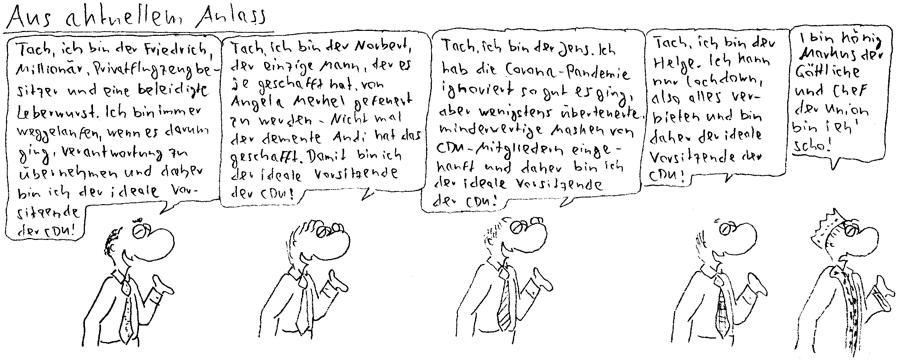 Aus aktuellem Anlass
Tach, ich bin der Friedrich,
Millionär, Privatflugzeugbe-
sitzer und eine beleidigte
Leberwurst. Ich bin immer
weggelaufen, wenn es darum
ging, Verantwortung zu
übernehmen und daher
bin ich der ideale Vor-
sitzende
der CDU!
Tach, ich bin der Norbert,
der einzige Mann, der es
je geschafft hat, von
Angela Merkel gefeuert
zu werden - Nicht mal
der demente Andi hat das
geschafft. Damit bin ich
der ideale Vorsitzende
der CDU!
Tach, ich bin der Jens. Ich
hab die Corona-Pandemie
ignoriert so gut es ging,
aber wenigstens überteuerte,
minderwertige Masken von
CDU-Mitgliedern einge-
kauft und daher bin ich
der ideale Vorsitzende
der CDU!
Tach, ich bin der
Helge. Ich kann
nur Lockdown,
also alles ver-
bieten und bin
daher der ideale
Vorsitzende der
CDU!
I bin König
Markus der
Göttliche
und Chef
der Union
bin ich
scho!